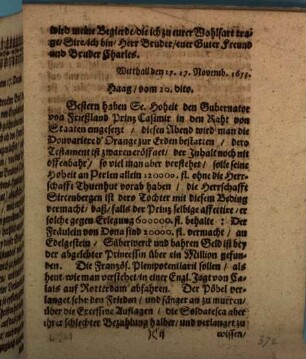 wird meine Begierde / die ich zu eurer Wohlfart tra-
ge / Sire / ich bin / Herr Bruder / euer Guter Freund
und Bruder Charles.
Witthall den 17. Novemb. 1675.
Haag / vom 20. dito.
Gestern haben Se. Hoheit den Gubernator
von Frießland Prinz Casimir in den Raht von
Staaten eingesetzt / diesen Abend wird man die
Douvariere d'Orange zur Erden bestatten / dero
Testament ist zwaren eröffnet / der Inhalt noch nit
offenbahr / so viel man aber verstehet / solle seine
Hoheit an Perlen allein 120000. fl. ohne die Herr-
schafft Thuenhut vorab haben / die Herrschafft
Sittenbergen ist dero Töchter mit diesem Beding
vermacht / daß / falls der Prinz selbige affectire / er
solche gegen Erlegung 600000. fl. behalte : Der
Fräulein von Dona sind 20000. fl. vermacht / an
Edelgestein / Silberwerck und bahren Geld ist bey
der abgelebter Princessin über ein Million gefun-
den. Die Französ. Plenipotentiarii sollen / als
heut wie man verstehet in einer Engl. Jagt von Ca-
lais auf Rotterdam abfahren. Der Pöbel ver-
langet sehr den Frieden / und fänget an zu murren /
über die Excessive Auflagen / die Soldatesca aber
ihrer schlechter Bezahlung halber / und verlanget zu
wissen /
372